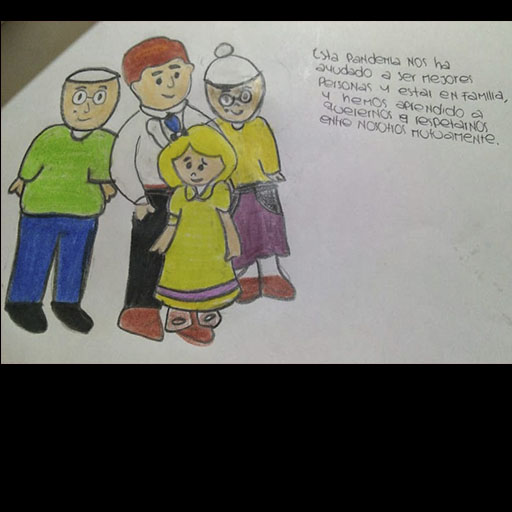 Esta Pandemia nos ha
ayudado a ser mejores
Personas y estar en familia,
y hemos aprendido a
querernos y respetarnos
entre nosotros mutuamente.